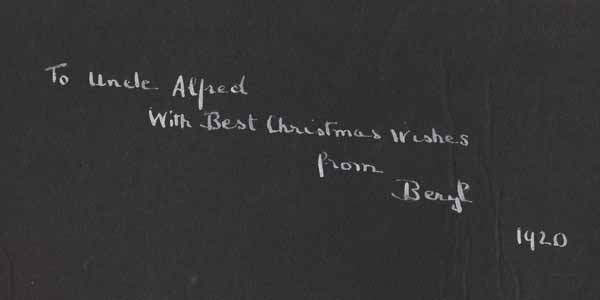 To Uncle Alfred
With Best Christmas Wishes
from
Beryl
1920